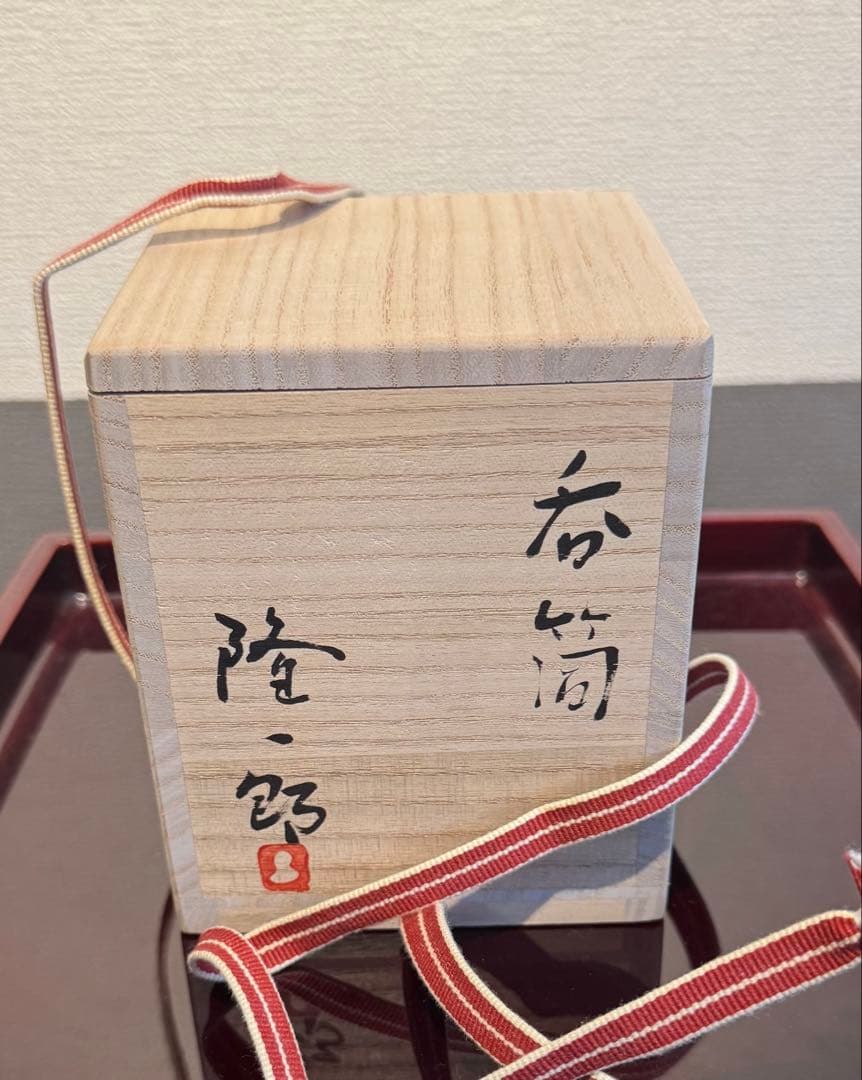 呑筒
隆一郎